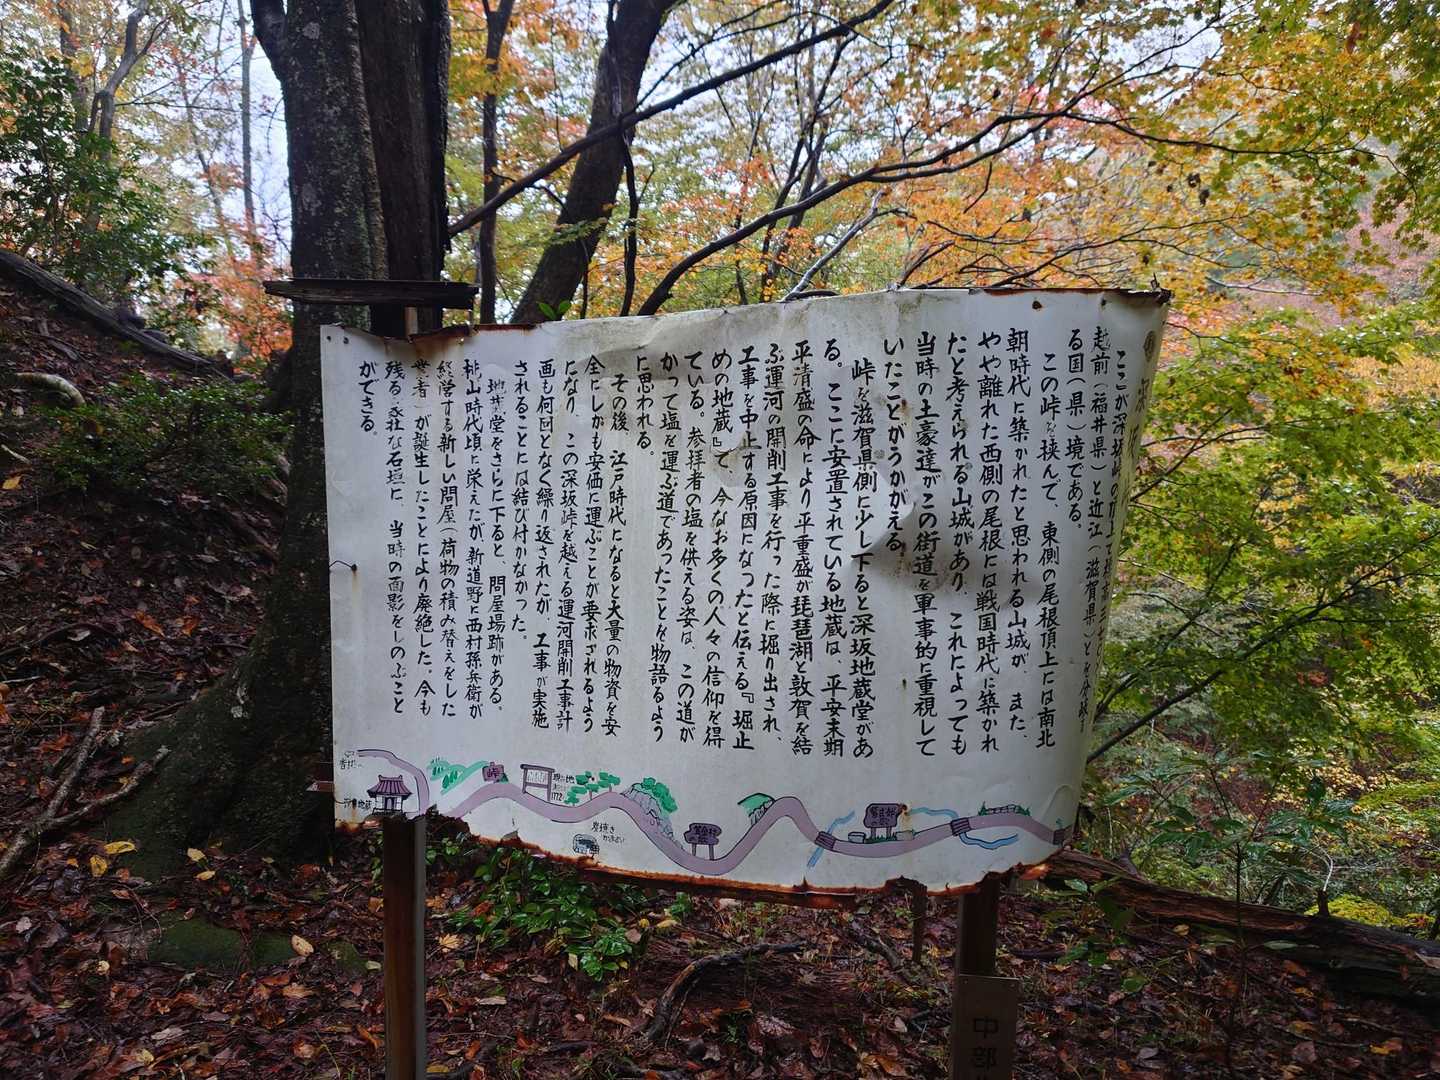 深坂
ここが深坂峠の頂上で標高三七〇
越前(福井県)と近江(滋賀県)とを分岐す
る国(県)境である。
この峠を挟んで、東側の尾根頂上には南北
朝時代に築かれたと思われる山城が、また、
やや離れた西側の尾根には戦国時代に築かれ
たと考えられる山城があり、これによっても
当時の土豪達がこの街道を軍事的に重視して
いたことがうかがえる。
峠を滋賀県側に少し下ると深坂地蔵堂があ
る。ここに安置されている地蔵は、平安末期
平清盛の命により平重盛が琵琶湖と敦賀を結
ぶ運河の開削工事を行った際に掘り出され、
工事を中止する原因になったと伝える『堀止
めの地蔵』で、今なお多くの人々の信仰を得
ている。参拝者の塩を供える姿は、この道が
かって塩を運ぶ道であったことを物語るよう
に思われる。
その後、江戸時代になると大量の物資を安
全にしかも安価に運ぶことが要求されるよう
になり、この深坂峠を越える運河開削工事計
画も何回となく繰り返されたが、工事が実施
されることには結び付かなかった。
地蔵堂をさらに下ると、問屋場跡がある。
桃山時代頃に栄えたが、新道野に西村孫兵衛が
経営する新しい問屋(荷物の積み替えをした
業者)が誕生したことにより廃絶した。今も
残る立派な石垣に、当時の面影をしのぶこと
ができる。
峠
現在地
炭焼き
紫式部
の歌
中部